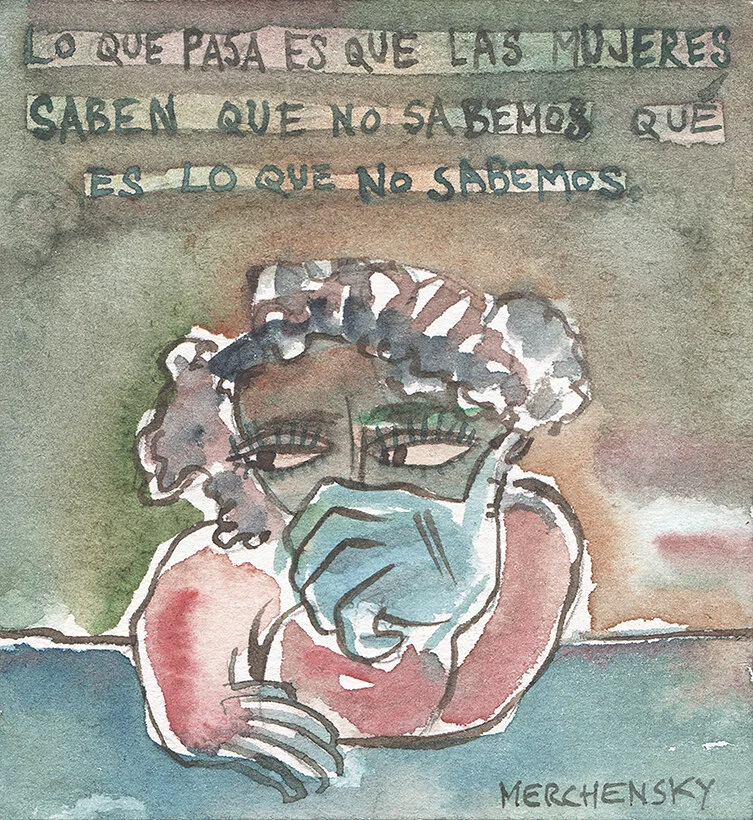 LO QUE PASA ES QUE LAS MUJERES
SABEN QUE NO SABEMOS QUÉ
ES LO QUE NO SABEMOS.
MERCHENSKY